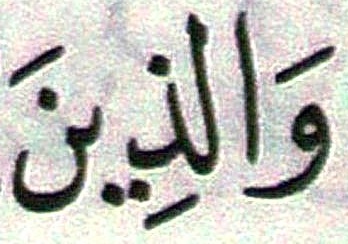 وَالذِينَ